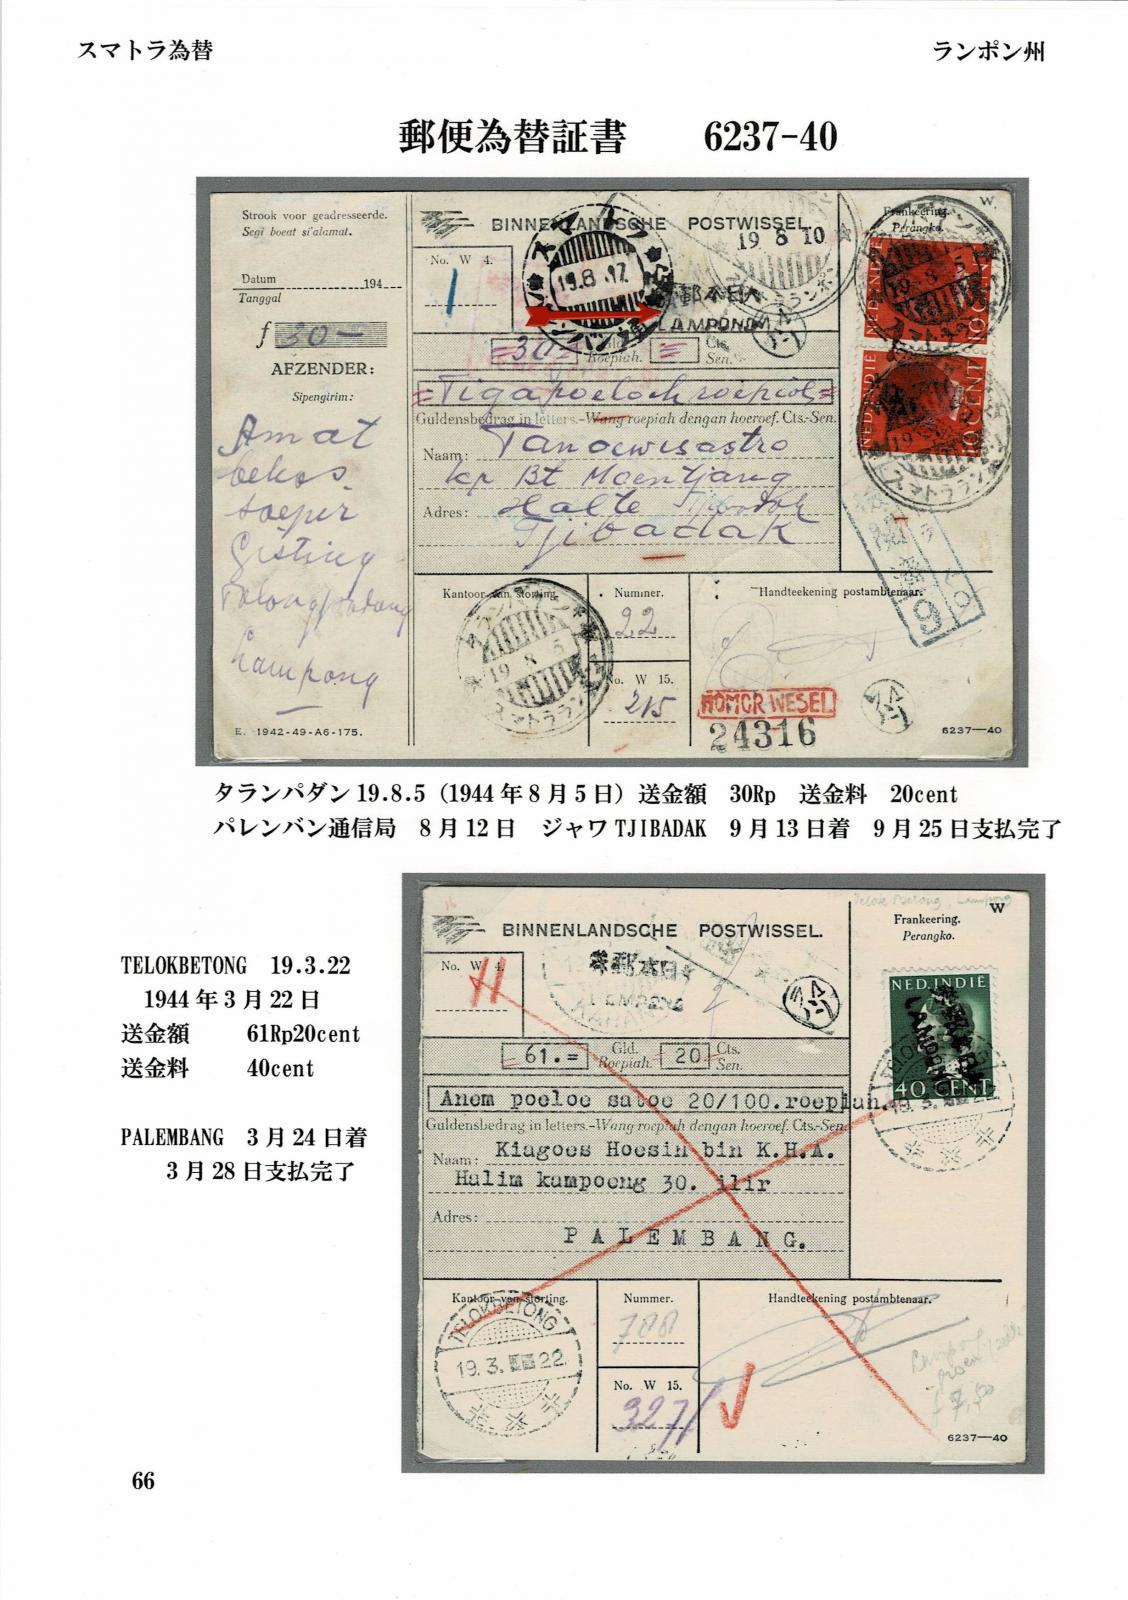 スマトラ為替
ランポン州
郵便為替証書 6237-40
Strook voor geadresseerde.
Segi boeat si'alamat.
Datum
194
Tanggal
f 30-
AFZENDER:
Sipengirim:
Amat
bekas
soepir
Gisting
Talangpadang
Lampong
E. 1942-49-A6-175.
BINNENLANDSCHE POSTWISSEL.
No. W 4.
1
19.8.12
19 8 10
LAMPONG
=30= Gld. Roepiah. = Cts. Sen.
=Tigapoeloeh roepiah=
Guldensbedrag in letters.-Wang roepiah dengan hoeroef. Cts.-Sen.
Naam: Tanoewisastro
kp Bt Moentjang
Adres: Halte Tjibadak
Tjibadak
W.
Frankeering.
Perangko.
NED. INDIE
10 CENT
NED. INDIE
10 CENT
19 8 5
Kantoor van storting.
19 8 5
Nummer.
22
No. W 15.
215
Handteekening postambtenaar.
NOMOR WESEL
24316
9
6237—40
タランパダン 19.8.5 (1944 年 8 月 5 日) 送金額 30Rp 送金料 20cent
パレンバン通信局 8 月 12 日 ジャワ TJIBADAK 9 月 13 日着 9 月 25 日支払完了
TELOKBETONG 19.3.22
1944 年 3 月 22 日
送金額 61Rp20cent
送金料 40cent
PALEMBANG 3 月 24 日着
3 月 28 日支払完了
BINNENLANDSCHE POSTWISSEL.
Telok Betong, Lampong
W
Frankeering.
Perangko.
NED. INDIE
LAMPONG
40 CENT
No. W 4.
11
61.= Gld. Roepiah. = 20 = Cts. Sen.
Anem poeloe satoe 20/100.roepiah.
Guldensbedrag in letters.-Wang roepiah dengan hoeroef. Cts.-Sen.
Naam: Kiagoes Hoesin bin K.H.A.
Halim kampoeng 30. ilir
Adres:
PALEMBANG.
Kantoor van storting.
TELOKBETONG
19.3. 22
Nummer.
788
No. W 15.
327
Handteekening postambtenaar.
f 7,50
6237—40
66